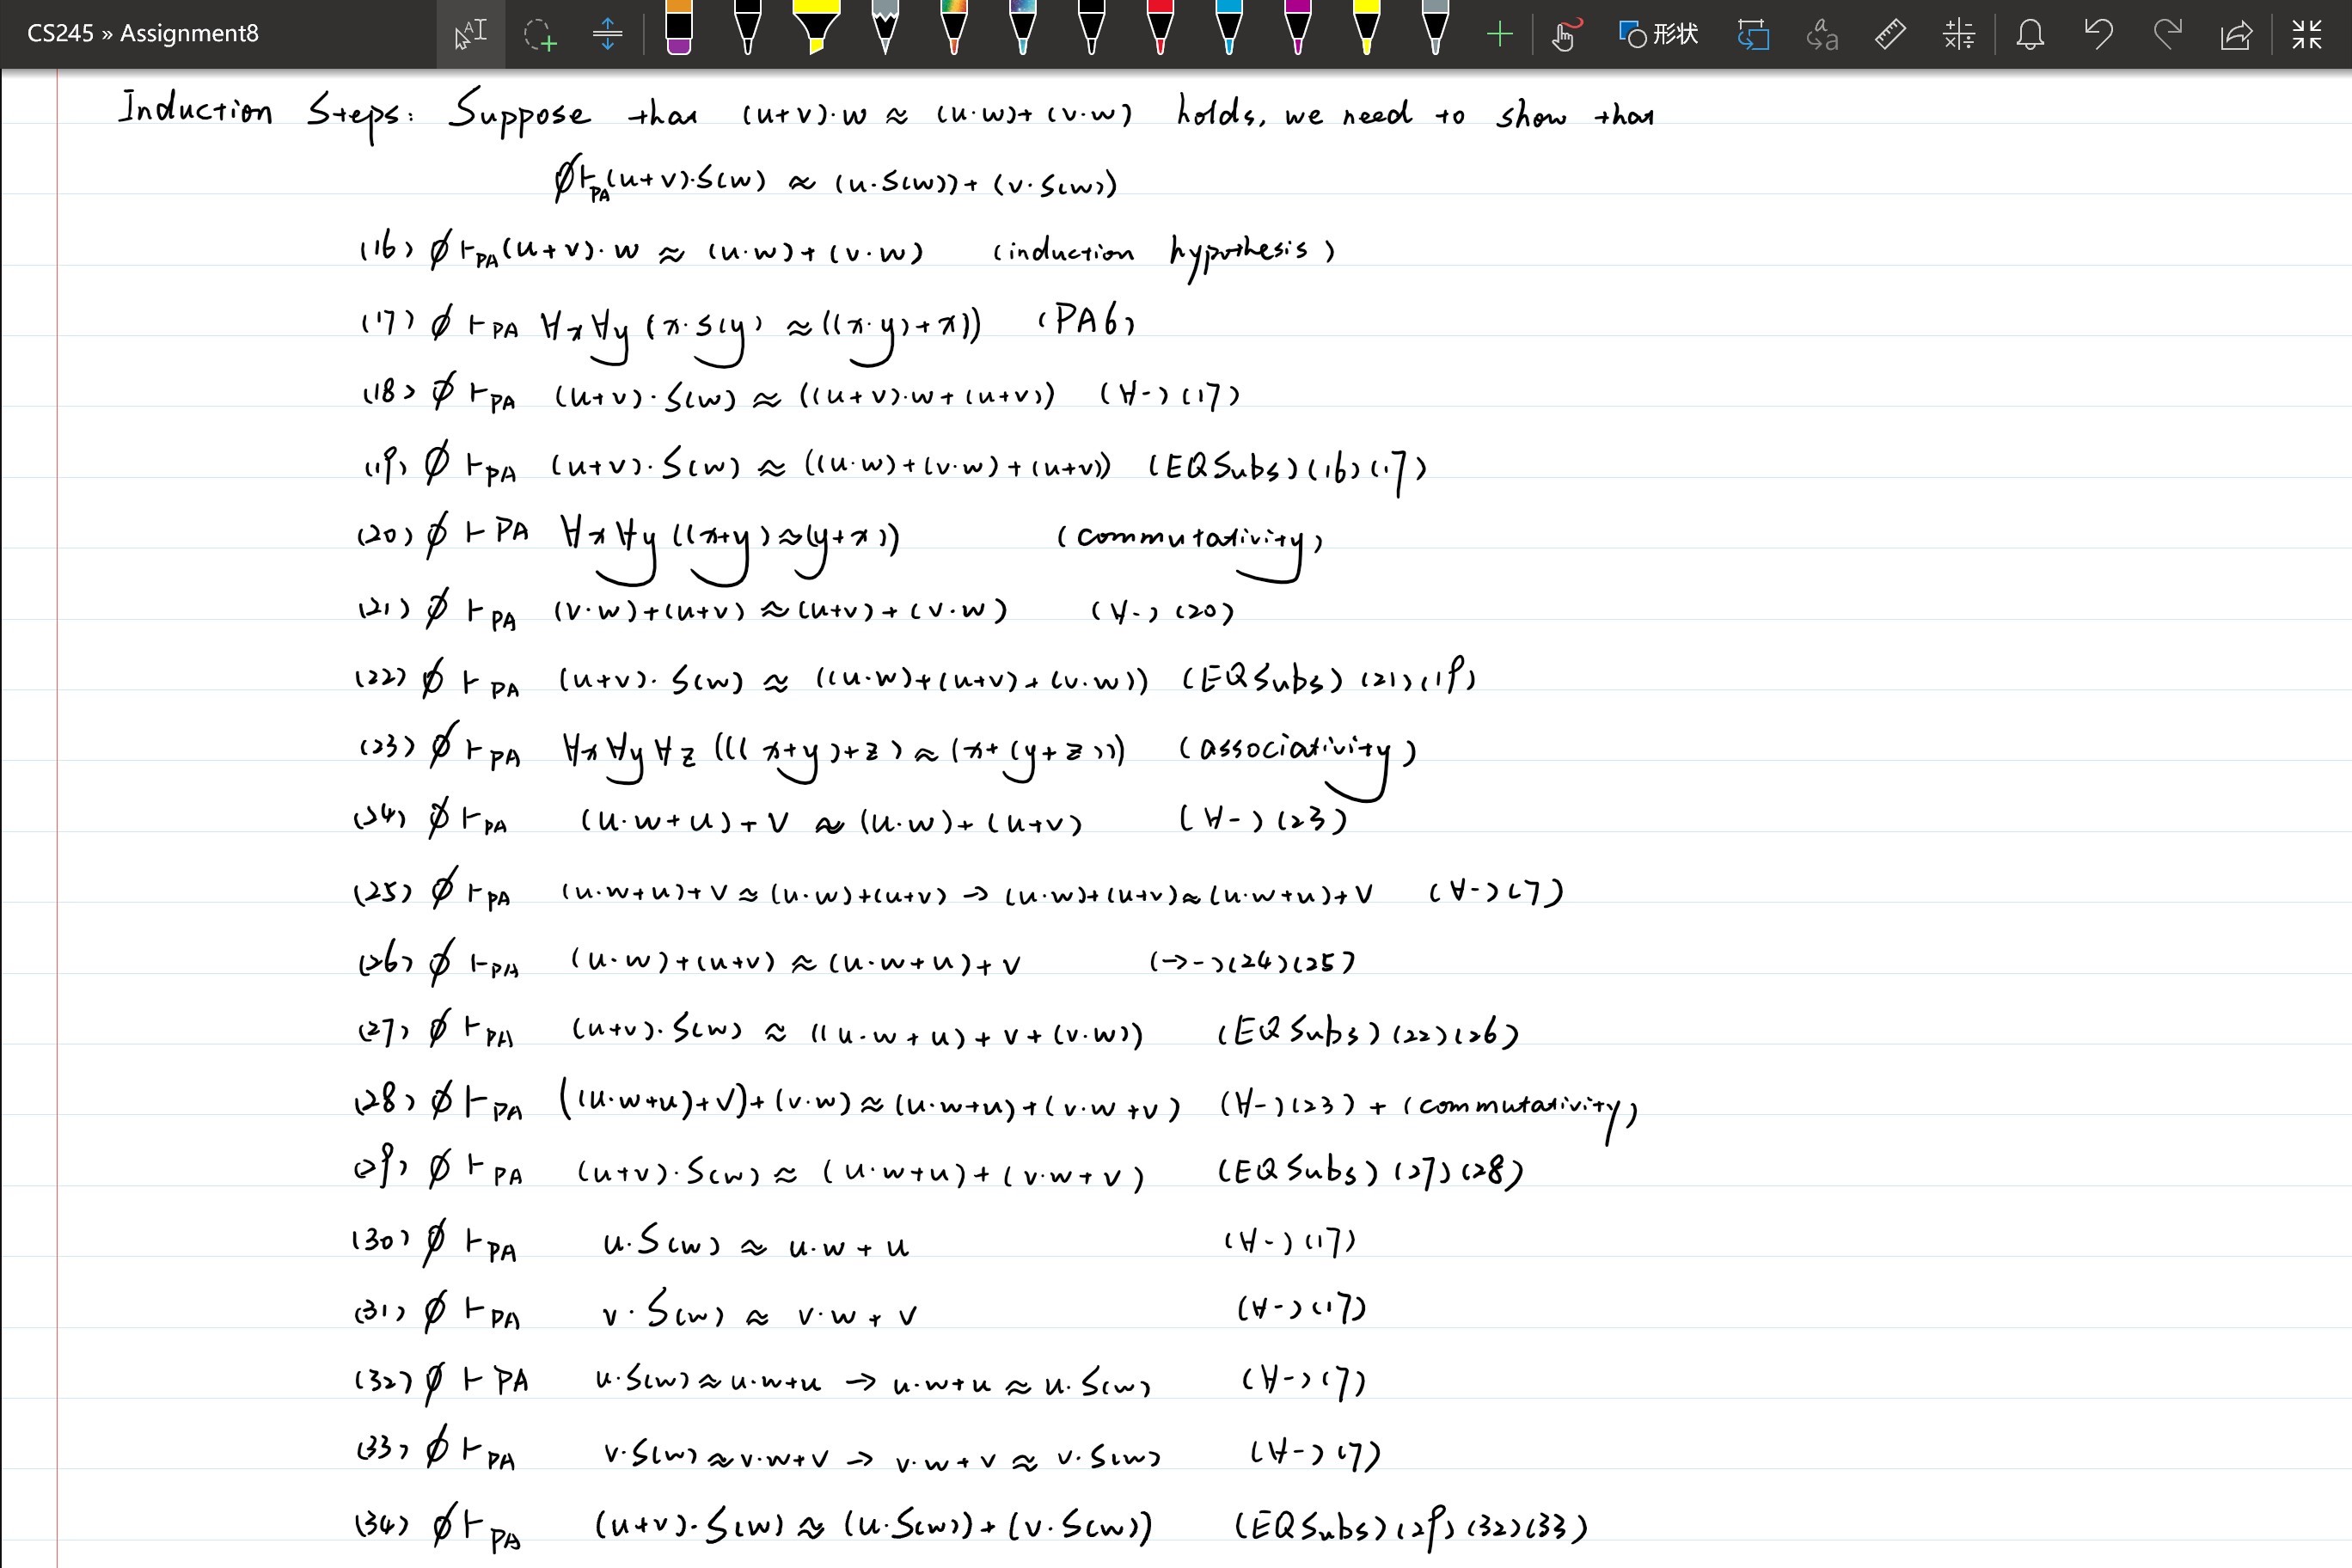 CS245 » Assignment8
形状
Induction Steps: Suppose that (u+v)·w ≈ (u·w)+(v·w) holds, we need to show that
∅⊢PA (u+v)·S(w) ≈ (u·S(w))+(v·S(w))
(16) ∅⊢PA (u+v)·w ≈ (u·w)+(v·w) (induction hypothesis)
(17) ∅⊢PA ∀x∀y(x·s(y) ≈((x·y)+x)) (PA6)
(18) ∅⊢PA (u+v)·S(w) ≈ ((u+v)·w+(u+v)) (∀-)(17)
(19) ∅⊢PA (u+v)·S(w) ≈ ((u·w)+(v·w)+(u+v)) (EQSubs)(16)(17)
(20) ∅⊢PA ∀x∀y((x+y)≈(y+x)) (commutativity)
(21) ∅⊢PA (v·w)+(u+v) ≈(u+v)+(v·w) (∀-)(20)
(22) ∅⊢PA (u+v)·S(w) ≈ ((u·w)+(u+v)+(v·w)) (EQSubs)(21)(19)
(23) ∅⊢PA ∀x∀y∀z(((x+y)+z)≈(x+(y+z))) (associativity)
(24) ∅⊢PA (u·w+u)+v ≈ (u·w)+(u+v) (∀-)(23)
(25) ∅⊢PA (u·w+u)+v≈(u·w)+(u+v) → (u·w)+(u+v)≈(u·w+u)+v (∀-)(7)
(26) ∅⊢PA (u·w)+(u+v) ≈(u·w+u)+v (→-)(24)(25)
(27) ∅⊢PA (u+v)·S(w) ≈ ((u·w+u)+v+(v·w)) (EQSubs)(22)(26)
(28) ∅⊢PA ((u·w+u)+v)+(v·w)≈(u·w+u)+(v·w+v) (∀-)(23)+(commutativity)
(29) ∅⊢PA (u+v)·S(w) ≈ (u·w+u)+(v·w+v) (EQSubs)(27)(28)
(30) ∅⊢PA u·S(w) ≈ u·w+u (∀-)(17)
(31) ∅⊢PA v·S(w) ≈ v·w+v (∀-)(17)
(32) ∅⊢PA u·S(w)≈u·w+u → u·w+u≈u·S(w) (∀-)(7)
(33) ∅⊢PA v·S(w)≈v·w+v → v·w+v≈v·S(w) (∀-)(7)
(34) ∅⊢PA (u+v)·S(w)≈(u·S(w))+(v·S(w)) (EQSubs)(29)(32)(33)